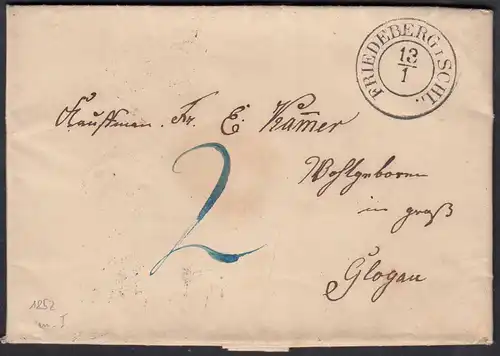 FRIEDEBERG i SCHL.
13/1
Kauffman. Fr. E. Kam̄er
2
Wohlgeboren
in groß
Glogau
1852